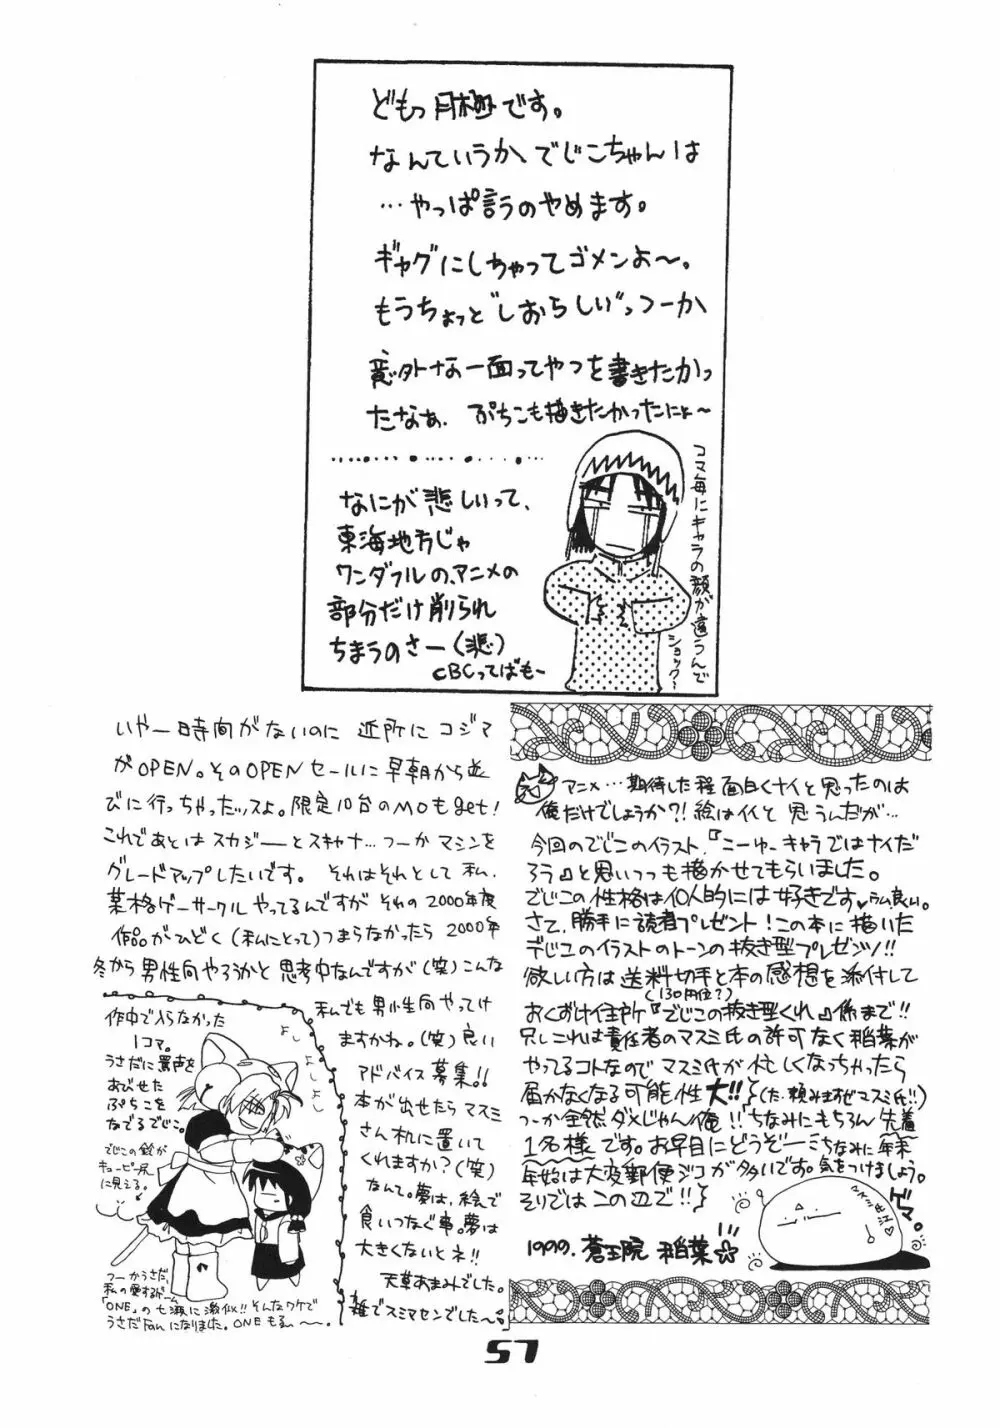 どもっ月極です。
なんていうか、でじこちゃんは
…やっぱ言うのやめます。
ギャグにしちゃってゴメンよ〜。
もうちょっと"しおらしい"っつーか
意外な一面ってやつを書きたかっ
たなぁ、ぷちこも描きたかったにょ〜
なにが悲しいって、
東海地方じゃ
ワンダフルの、アニメの
部分だけ削られ
ちまうのさー(悲)
CBCってばもー
コマ毎にキャラの顔が違うんで
ショック?
いやー時間がないのに 近所に コジマ
がOPEN。そのOPENセールに早朝から並
びに行っちゃったッスよ。限定10台のMOもget!
これであとは スカジーとスキャナ…つーか マシンを
グレードアップしたいです。それはそれとして 私、
葉格ゲーサークル やってるんですが その2000年度
作品がひどく(私にとって)つまらなかったら 2000年
冬から 男性向やろうかと 思考中なんですが(笑)こんな
私でも 男性向やってけ
ますかね。(笑)良い
アドバイス募集!!
本が出せたら マスミ
さん机に置いて
くれますか?(笑)
なんて。夢は、絵で
食いつなぐ事。夢は
大きくないとネ!!
天草あまみでした。
雑でスミマセンでした〜。
作中で入らなかった
1コマ。
うさだに罵声を
あびせた
ぷちこを
なでるでじこ。
よしよし
よしよし
でじこの鈴が
キューピー尻
に見える。
つーかうさだ、
私の愛するゲーム
「ONE」の七瀬に激似!!そんなワケで
うさだFanになりました。ONEもえ〜。
アニメ…期待した程 面白くナイと思ったのは
俺だけでしょうか?!絵はイイと 思うんだが…
今回のでじこのイラスト、『こーゆーキャラではナイだ
ろう』と思いつつも描かせてもらいました。
でじこの性格は個人的には好きです♥ラム良い。
さて、勝手に読者プレゼント!この本に描いた
デじこのイラストのトーンの抜き型プレゼンツ!!
欲しい方は 送料切手と本の感想を添付して
(130円位?)
おくづけ住所『でじこの抜き型くれ』係まで!!
只しこれは責任者のマスミ氏の許可なく稲葉が
やってるコトなので マスミ氏が 忙しくなっちゃったら
届かなくなる可能性大!!(た、頼みますぜマスミ氏!!)
つーか全然ダメじゃん俺!!ちなみにもちろん 先着
1名様 です。お早目にどうぞー ちなみに年末
年始は大変郵便ジコが多いです。気をつけましょう。
そりでは この辺で!!
ゲマ。
1999. 蒼王院 稲葉
57